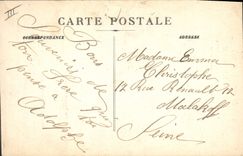 III
CARTE POSTALE
CORRESPONDANCE
ADRESSE
Bons
Souvenirs de
ton
pense à
Adolphe
Madame Emma
Christophe
12 Rue Renault 12
Malakoff
Seine